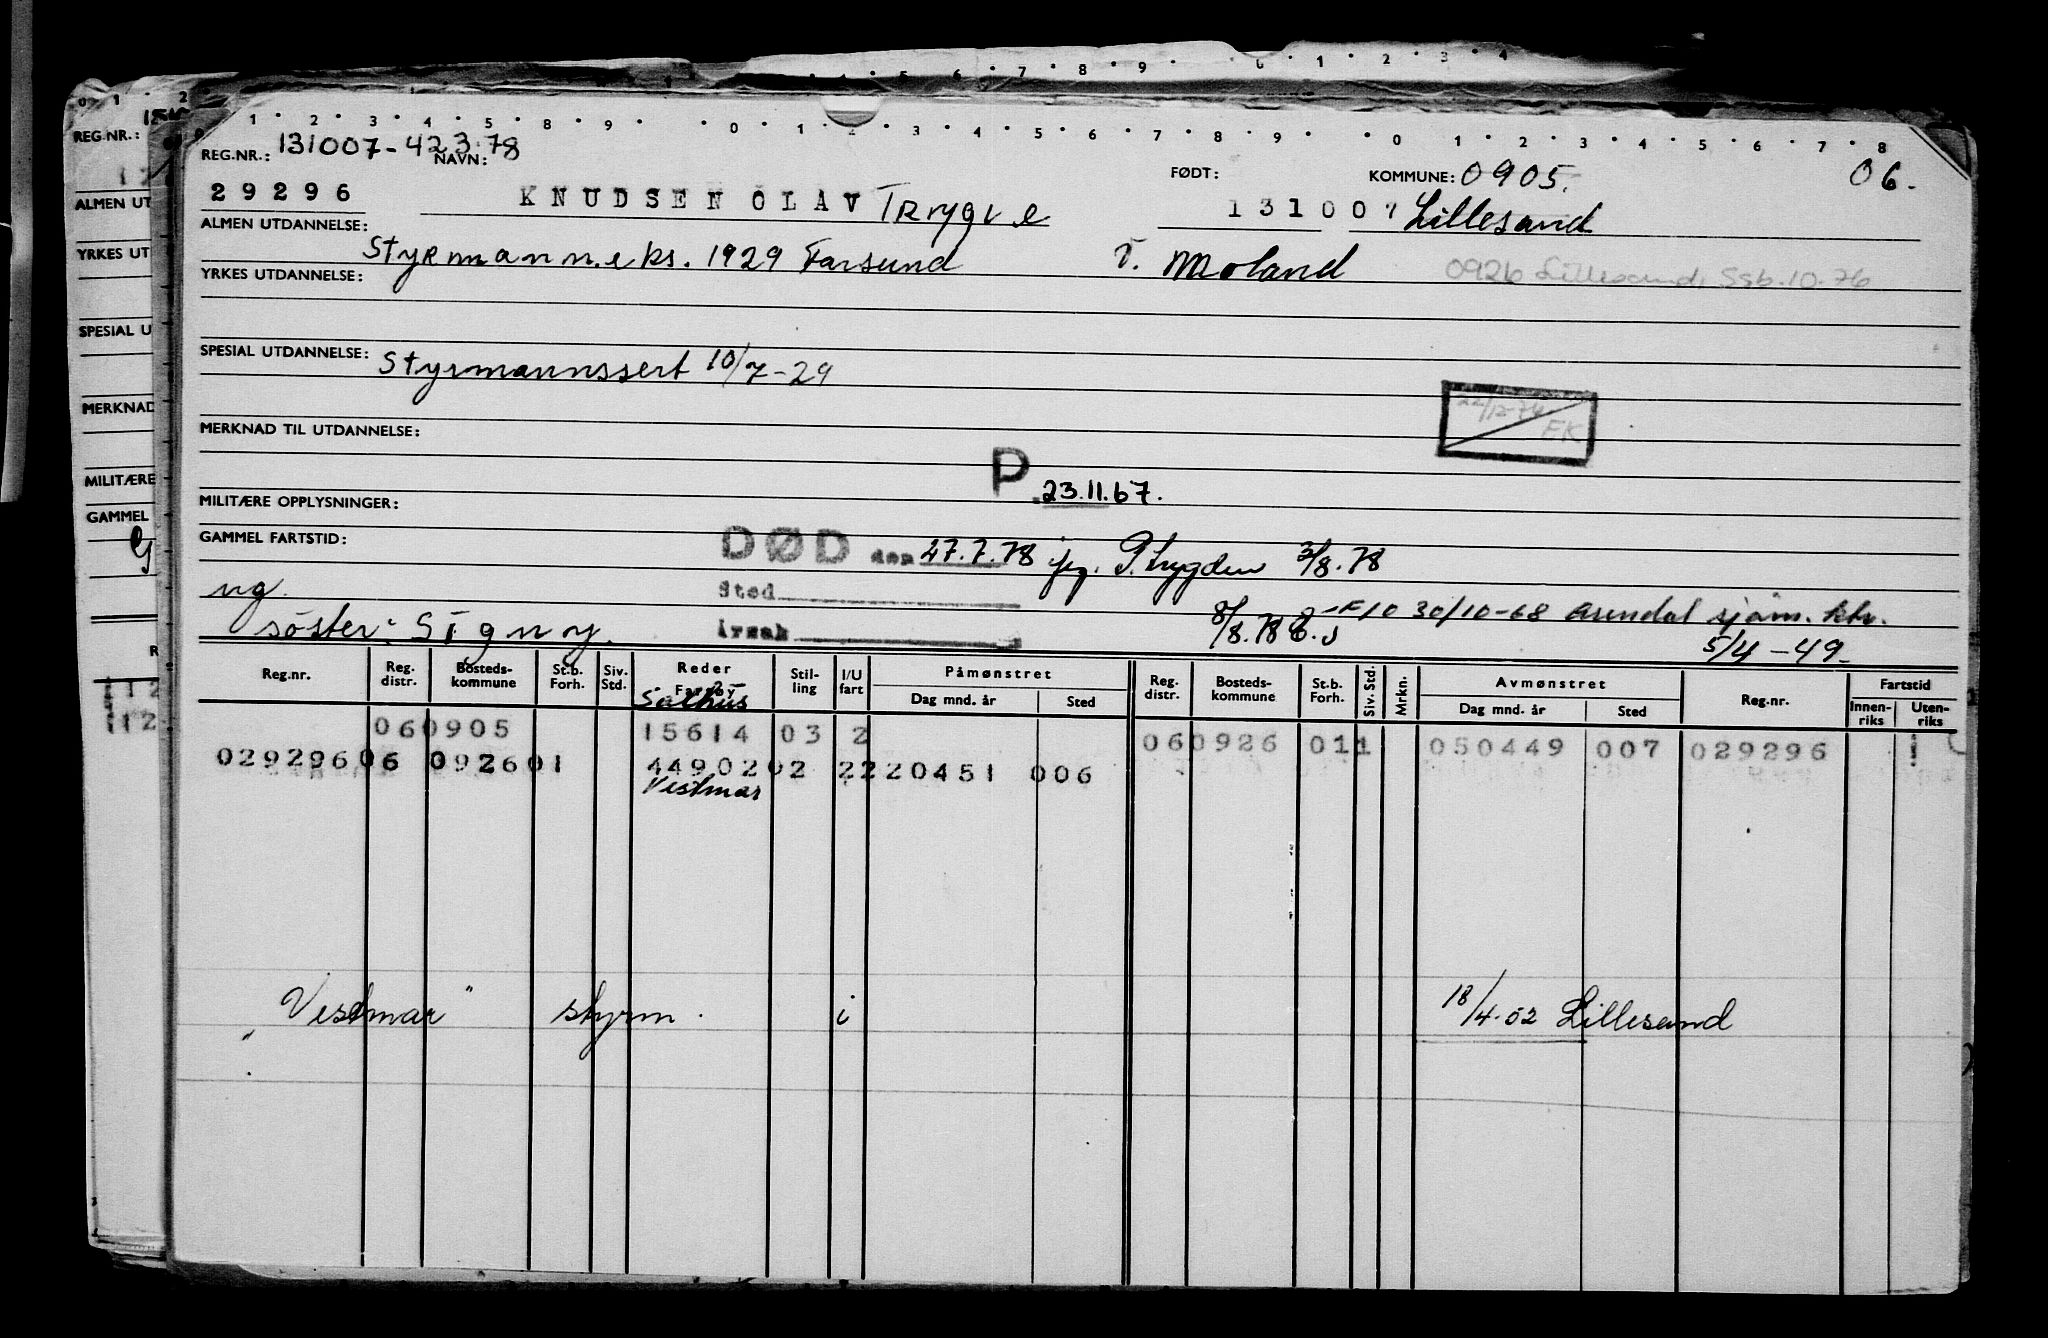 REG.NR.: 131007-42378 NAVN: FØDT: KOMMUNE: 0905. 06.
29296 KNUDSEN OLAV Trygve 131007 Lillesand
ALMEN UTDANNELSE: Styrmann.eks. 1929 Farsund V. Moland 0926 Lillesand, Ssb.10.76
YRKES UTDANNELSE:
SPESIAL UTDANNELSE: Styrmannssert 10/7-29
22/12-74 FK
MERKNAD TIL UTDANNELSE:
P. 23.11.67.
MILITÆRE OPPLYSNINGER:
GAMMEL FARTSTID: DØD den 27.7.78 jfg. P.trygden 3/8.78
ug. Sted
søster: Signy. Årsak 8/8.78 F10 30/10-68 Arendal sjøm. ktr.
5/4-49-
Reg.nr. Reg. distr. Bosteds- kommune St.b. Forh. Siv. Std. Reder Fartøy Stil- ling I/U fart Påmønstret Dag mnd. år Sted Reg. distr. Bosteds- kommune St.b. Forh. Siv. Std. Mrkn. Avmønstret Dag mnd. år Sted Reg.nr. Fartstid Innen- riks Uten- riks
Salhus
060905 15614 03 2 060926 011 050449 007 029296
02929606 092601 4490202 2220451 006
Vestmar
"Vestmar" styrm. i 18/4.52 Lillesand
REG.NR.:
ALMEN UT
YRKES UT
SPESIAL U
MERKNAD
MILITÆRE
GAMMEL